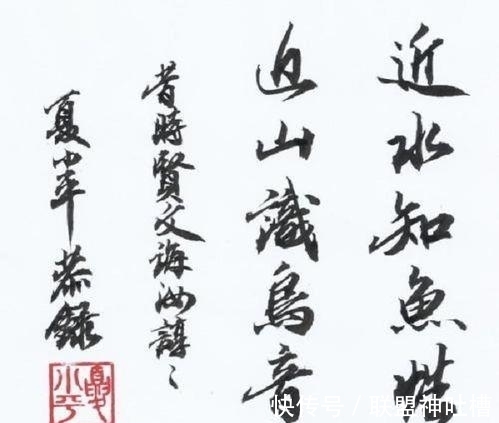 近水知魚性
近山識鳥音
昔時賢文誨汝諄〻
夏小平 恭錄
夏小平
快传号 / 联盟神吐槽